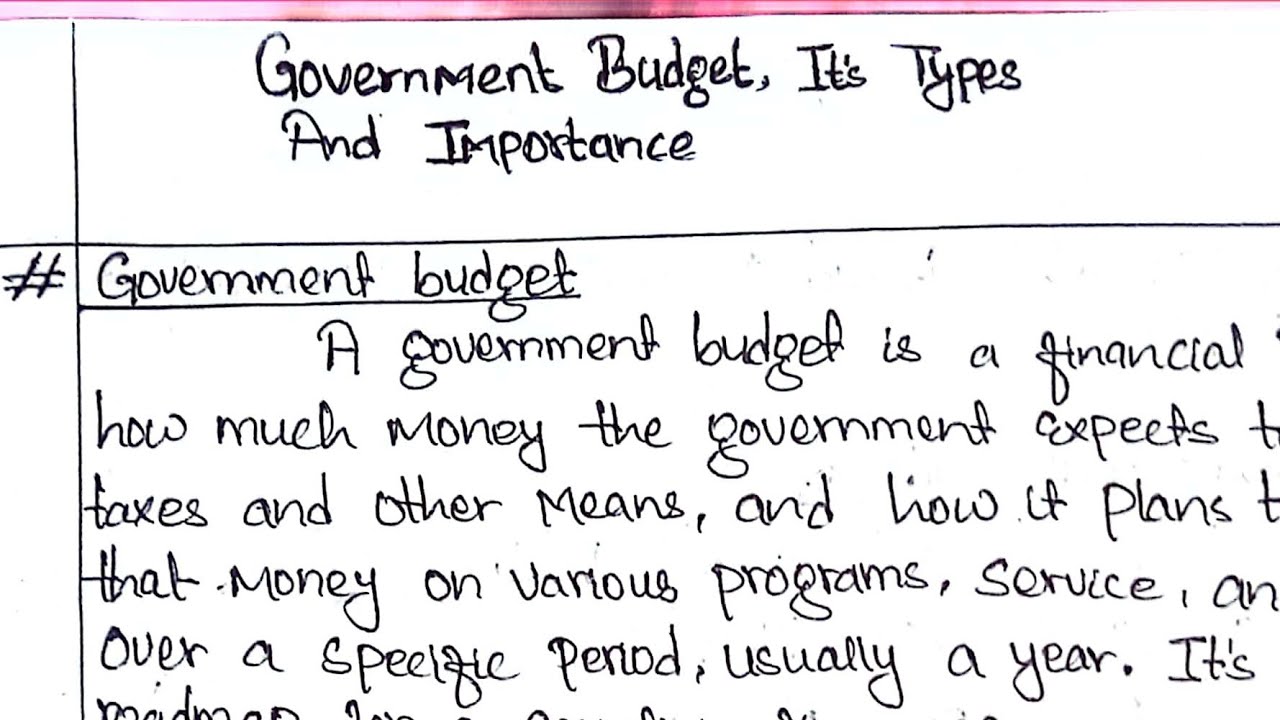 Government Budget, It's Types
And Importance
# Government budget
A government budget is a financial
how much money the government expects
taxes and other means, and how it plans
that money on various programs, service,
over a specific period, usually a year. It's
roadmap for a